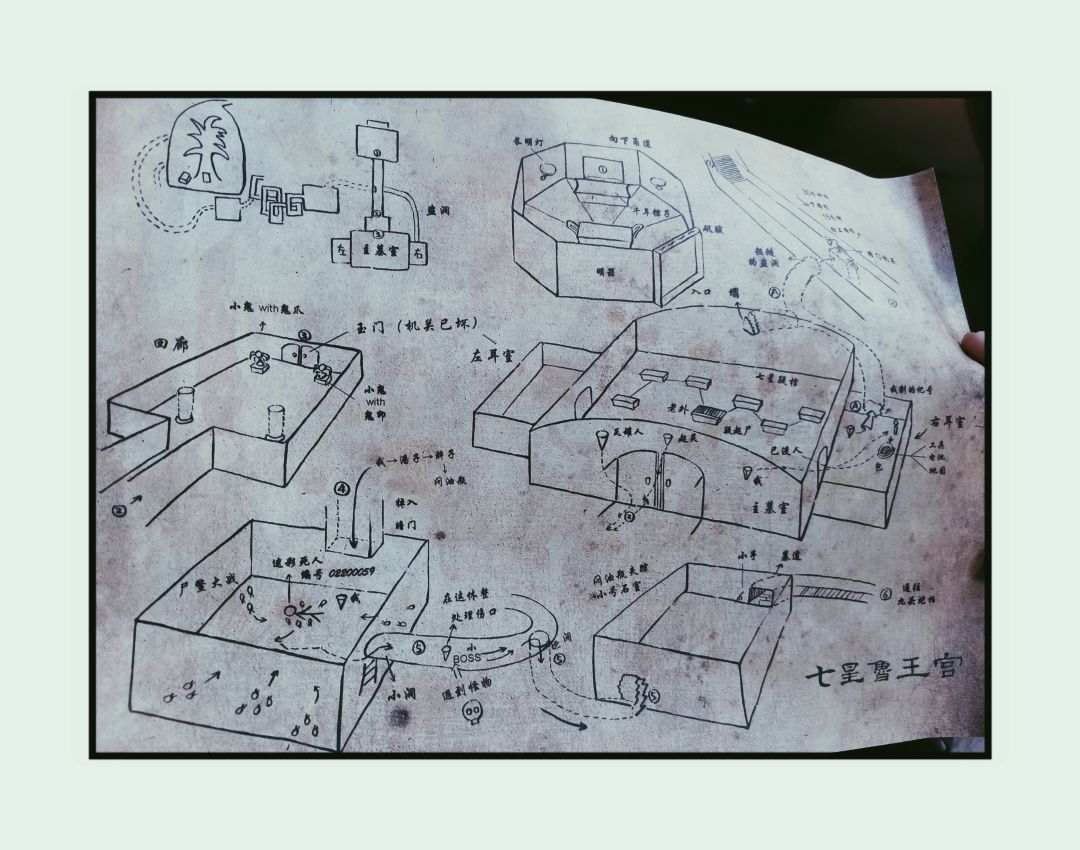 ①
②
③
左
主墓室
右
盗洞
长明灯
向下甬道
①
明器
入口
粗糙
的盗洞
Ⓐ
小鬼 with鬼爪
③
玉门（机关已坏）
回廊
小鬼
with
鬼卵
②
左耳室
七星疑棺
老外
疑起尸
瓦罐人
起灵
已没人
我
主墓室
②
Ⓐ
我刻的记号
右耳室
包
工具
电池
地图
我→潘子→胖子
↓
闷油瓶
④
掉入
暗门
尸蟞大战
遮彰死人
编号 02200059
我
在这休整
处理伤口
⑤
小
BOSS
遇到怪物
小洞
⑤
闷油瓶失踪
小号石室
小手
墓道
⑥ 通往
九头蛇柏
⑤
七星鲁王宫